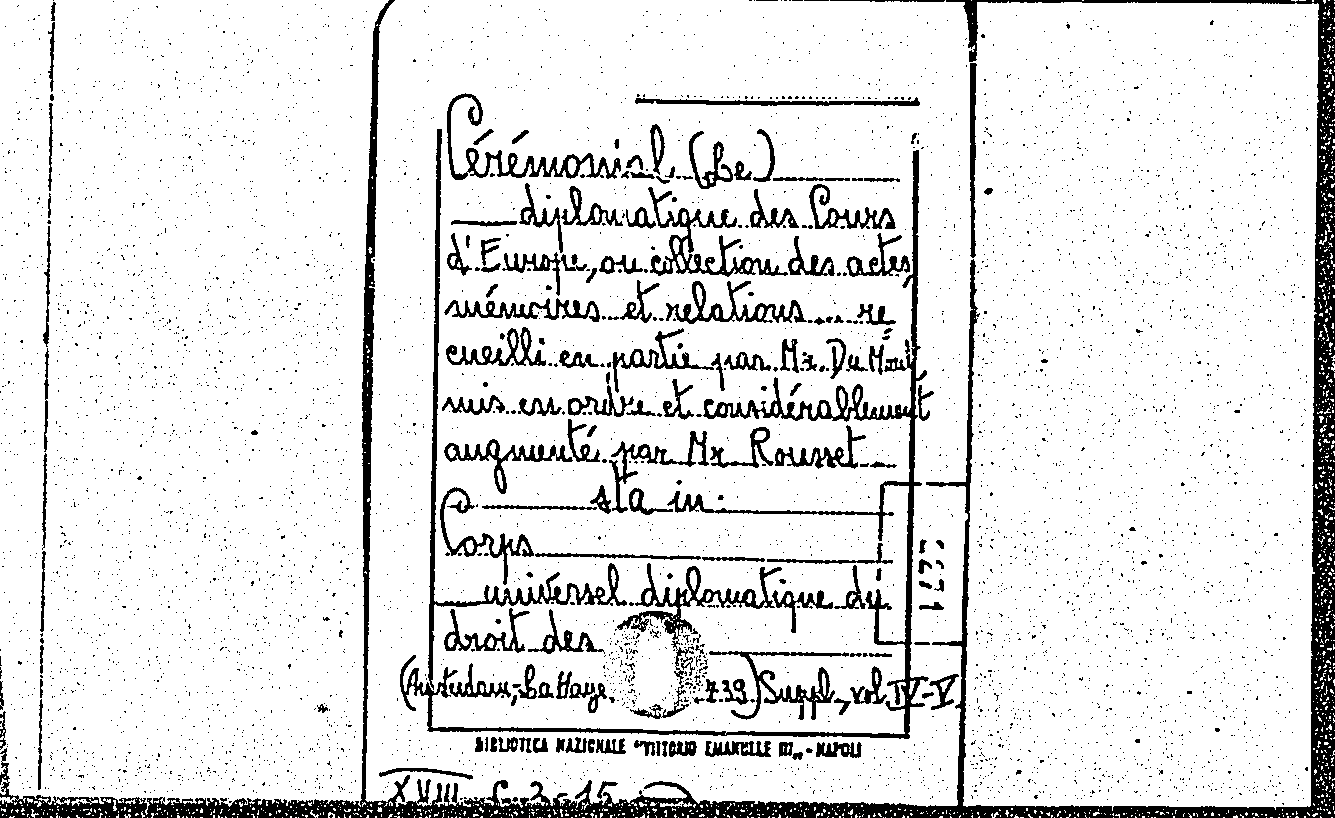 Cérémonial (Le)
diplomatique des Cours
d'Europe, ou collection des actes,
mémoires et relations ... re
cueilli en partie par Mr. Du Mont,
mis en ordre et considérablement
augmenté par Mr Rousset
sta in:
Corps
universel diplomatique du
droit des
(Amsterdam, La Haye, 739) Suppl., vol IV-V.
BIBLIOTECA NAZIONALE "VITTORIO EMANUELE III" - NAPOLI
XVIII C. 2-15